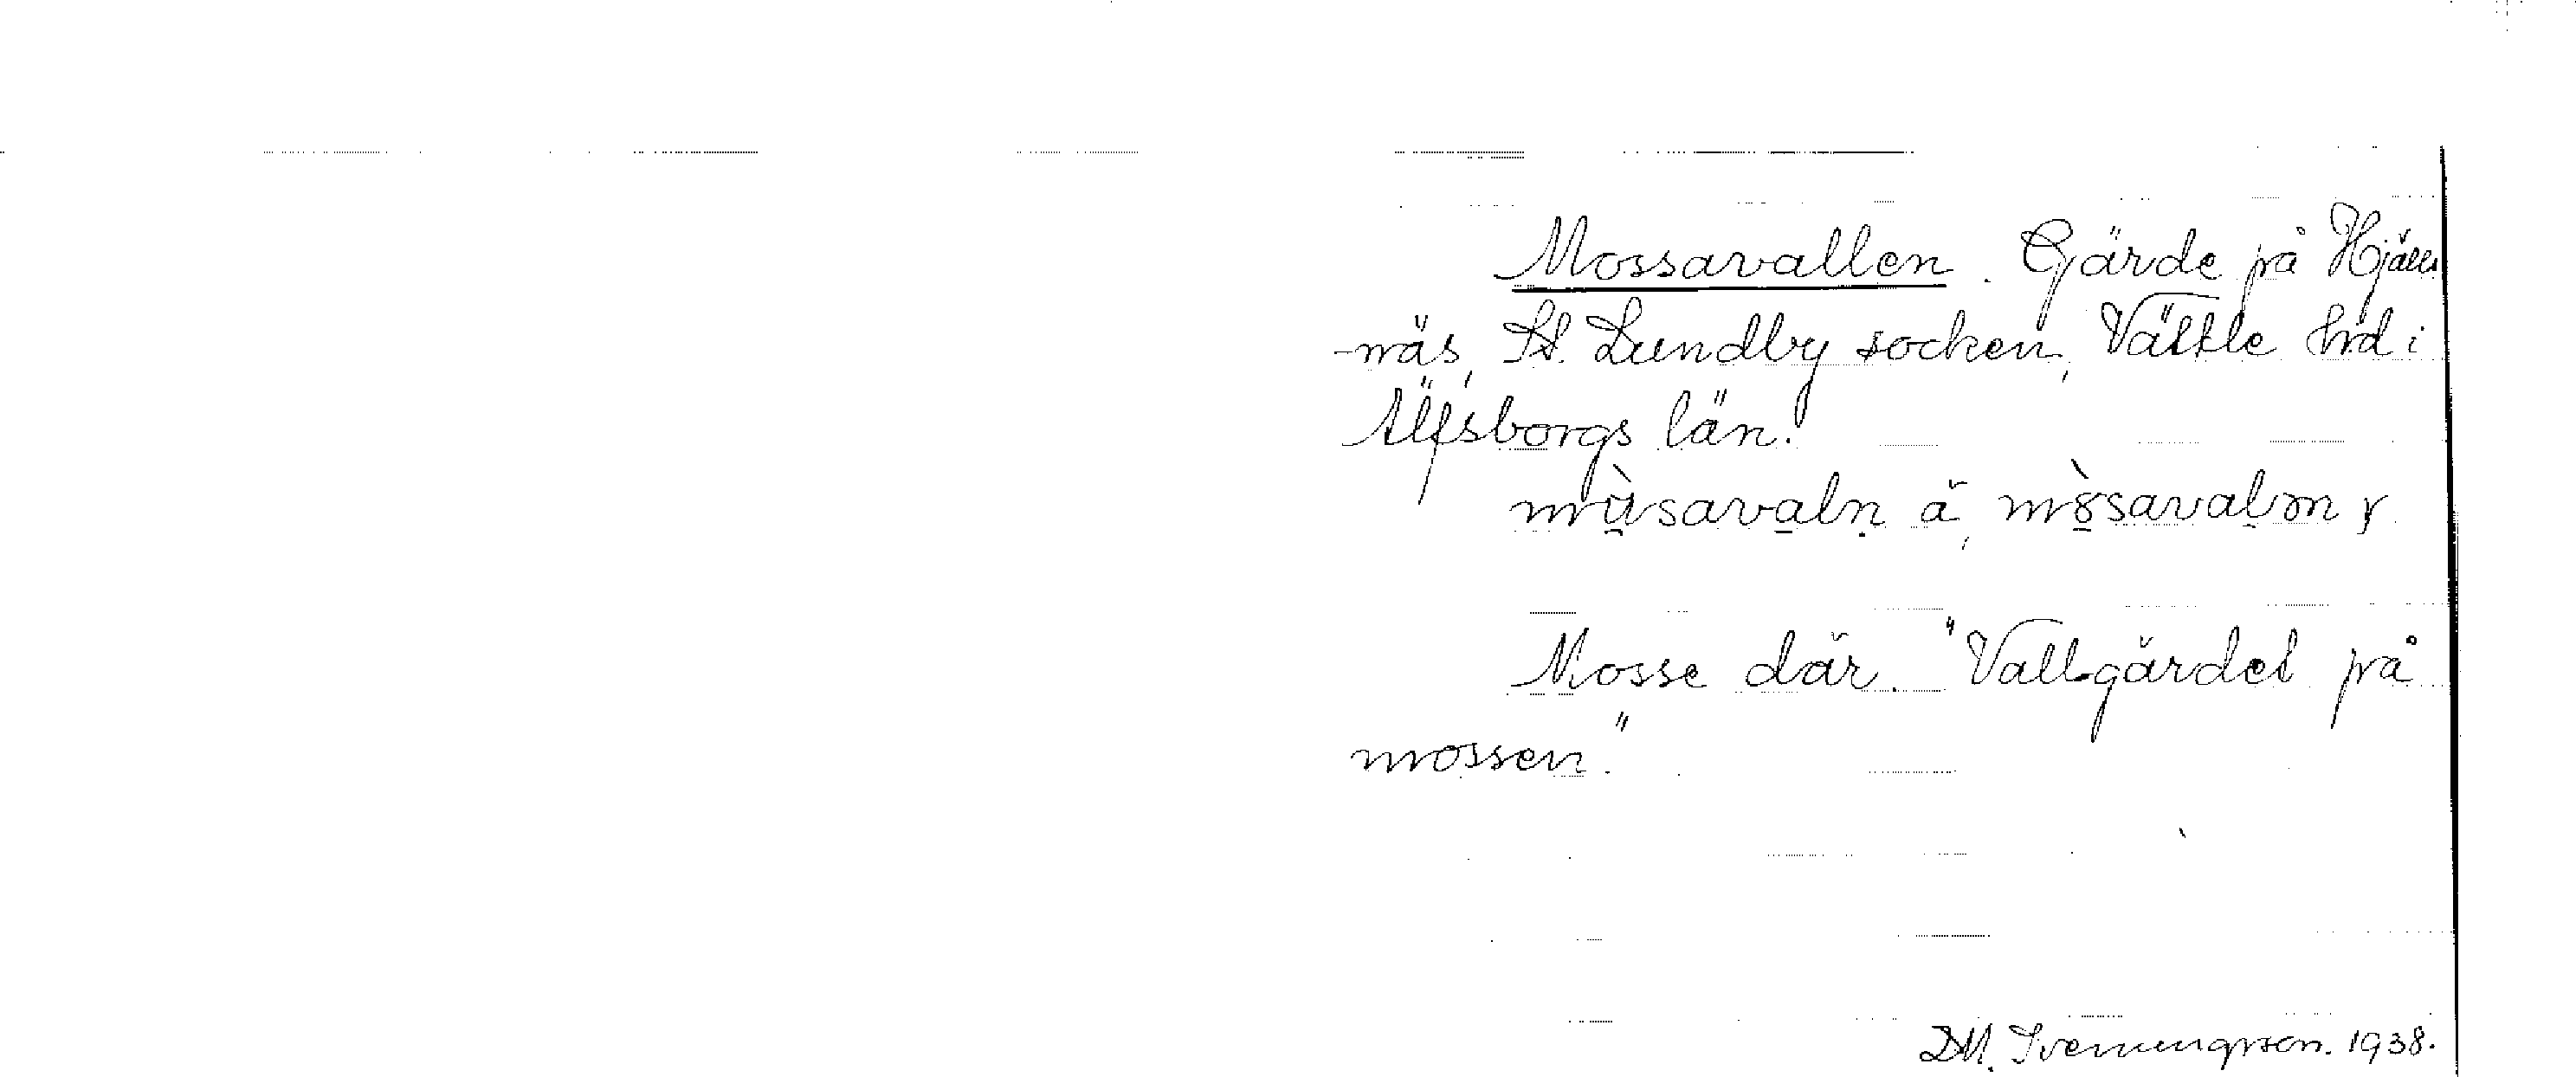 Mossavallen. Gärde på Hjäll
-näs, St. Lundby socken, Vättle hrd i
Älfsborgs län.
mùsavaln ä, mòsavalən
Mosse där. "Vallgärdet på
mossen."
D.M. Svenningsson. 1938.